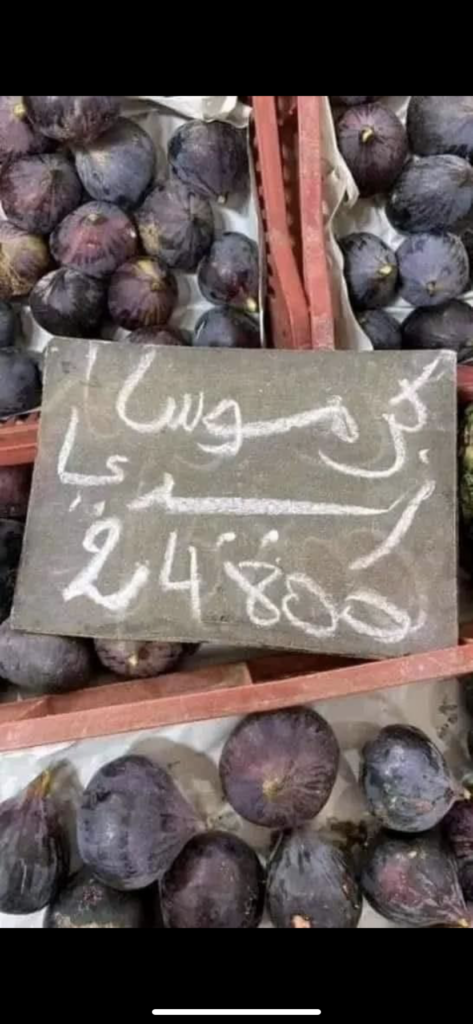 كرموس
زيدي
24800